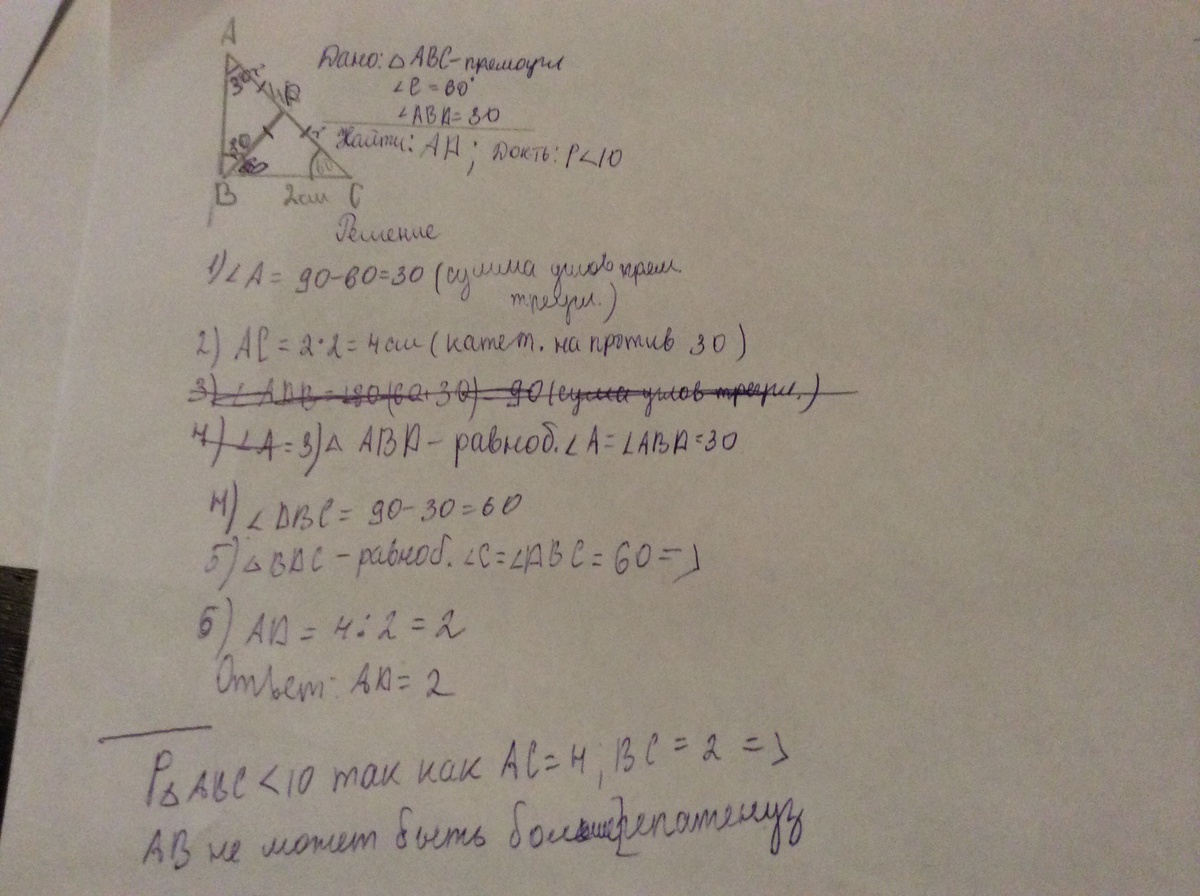 A
30
30
60
60
B
2см
C
Дано: △ ABC - прямоугл
∠C = 60°
∠ABD = 30
Найти: AD; Док-ть: P<10
Решение
1) ∠A = 90-60=30 (сумма углов прям.
треугл.)
2) AC = 2·2 = 4см (катет. на против 30)
3) ∠ ADB = 180(60+30) = 90 (сума углов треугл.)
4) ∠A = 3) △ ABD - равноб. ∠A = ∠ABD = 30
4) ∠DBC = 90-30=60
5) △ BDC - равноб. ∠C = ∠DBC = 60 =>
6) AD = 4:2 = 2
Ответ: AD = 2
P△ABC <10 так как AC=4; BC = 2 =>
AB не может быть больше гепатенуз